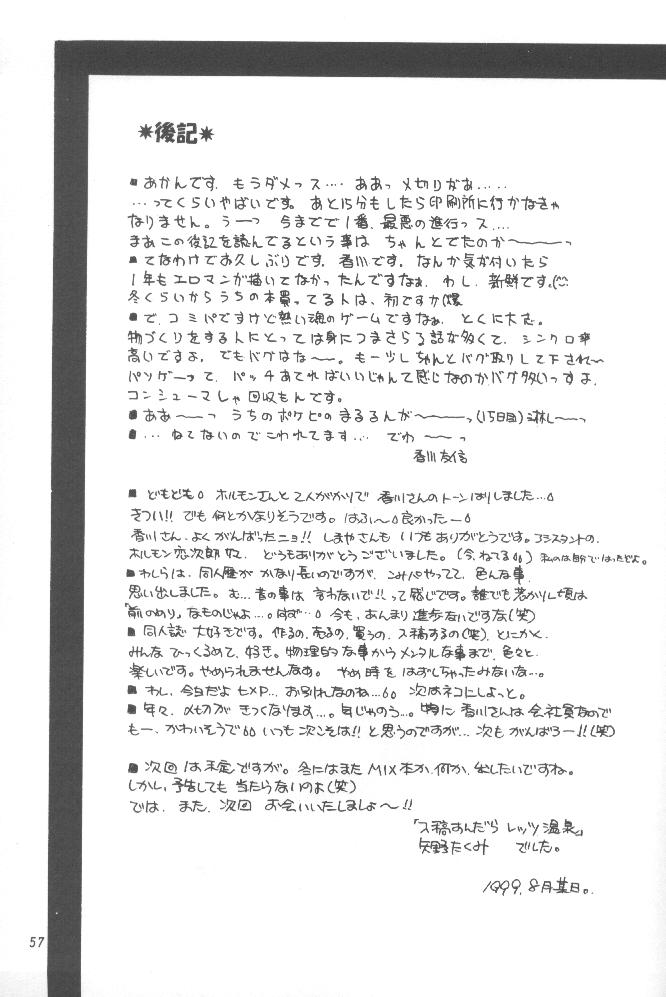 ✴後記✴
■あかんです。もうダメっス‥‥ ああっ 〆切りがぁ‥‥‥
‥‥ってくらいやばいです。あと15分もしたら印刷所に行かなきゃ
なりません。うーっ 今までで1番、最悪の進行っス‥‥
まあこの後記を読んでるという事は ちゃんとでたのか〜〜〜っ
■てなわけでお久しぶりです。香川です。なんか気が付いたら
1年もエロマンガ描いてなかったんですなぁ。わし。新鮮です。
冬くらいからうちの本買ってる人は、初ですか(爆
■で、コミパですけど熱い魂のゲームですなぁ。とくに大志。
物づくりをする人にとっては身につまさらる話が多くて、シンクロ率
高いですよ。でもバグはな〜〜。もーツしちゃんとバグ取りして下され〜
パソゲーって、パッチあてればいいじゃんて感じなのかバグ多いっすよ。
コンシューマしゃ回収もんです。
■ああ〜〜っ うちのポケピのまるるんが〜〜〜っ(15日目)淋し〜〜っ
■‥‥ねてないのでこわれてます‥‥ でわ 〜〜っ
香川友信
■どもども。ホルモンさんと2人がかりで香川さんのトーンはりしました‥‥
きつい!! でも何とかなりそうです。はふぅ〜 良かったー
香川さん、よくがんばったニョ!! しまやさんも いつもありがとうです。アシスタントの、
ホルモン恋次郎 どうもありがとうございました。(今、ねてる) 私のは自分ではったどよ。
■わしらは、同人歴が かなり長いのですが、こみパやってて 色んな事、
思い出しました。む‥‥昔の事は 言わないで!! って感じです。誰でも若かりし頃は
「前のめり」なものじゃよ‥‥。はず‥‥ 今も、あんまり進歩ないですな(笑)
■同人誌 大好きです。作るの、売るの、買うの、入稿するの(笑)、とにかく、
みんな ひっくるめて、好き。物理的な事から メンタルな事まで、色々と、
楽しいです。やめられませんなぁ。 やめ時を はずしちゃったみたいな‥‥。
■わし、今日だよ お別れなのね‥‥ 次はネコにしよっと。
■年々、〆切が きつくなります‥‥。年じゃのう‥‥。特に 香川さんは 会社員なので
もー、かわいそうで いつも 次こそは!! と思うのですが‥‥ 次も がんばろー!!(笑)
■次回は未定ですが。冬にはまた MIX本か、何か、出したいですね。
しかし、予告しても 当たらないのよ(笑)
では、また、次回 お会いいたしましょ〜!!
「入稿すんだら レッツ温泉」
矢野たくみ でした。
1999.8月某日。
57